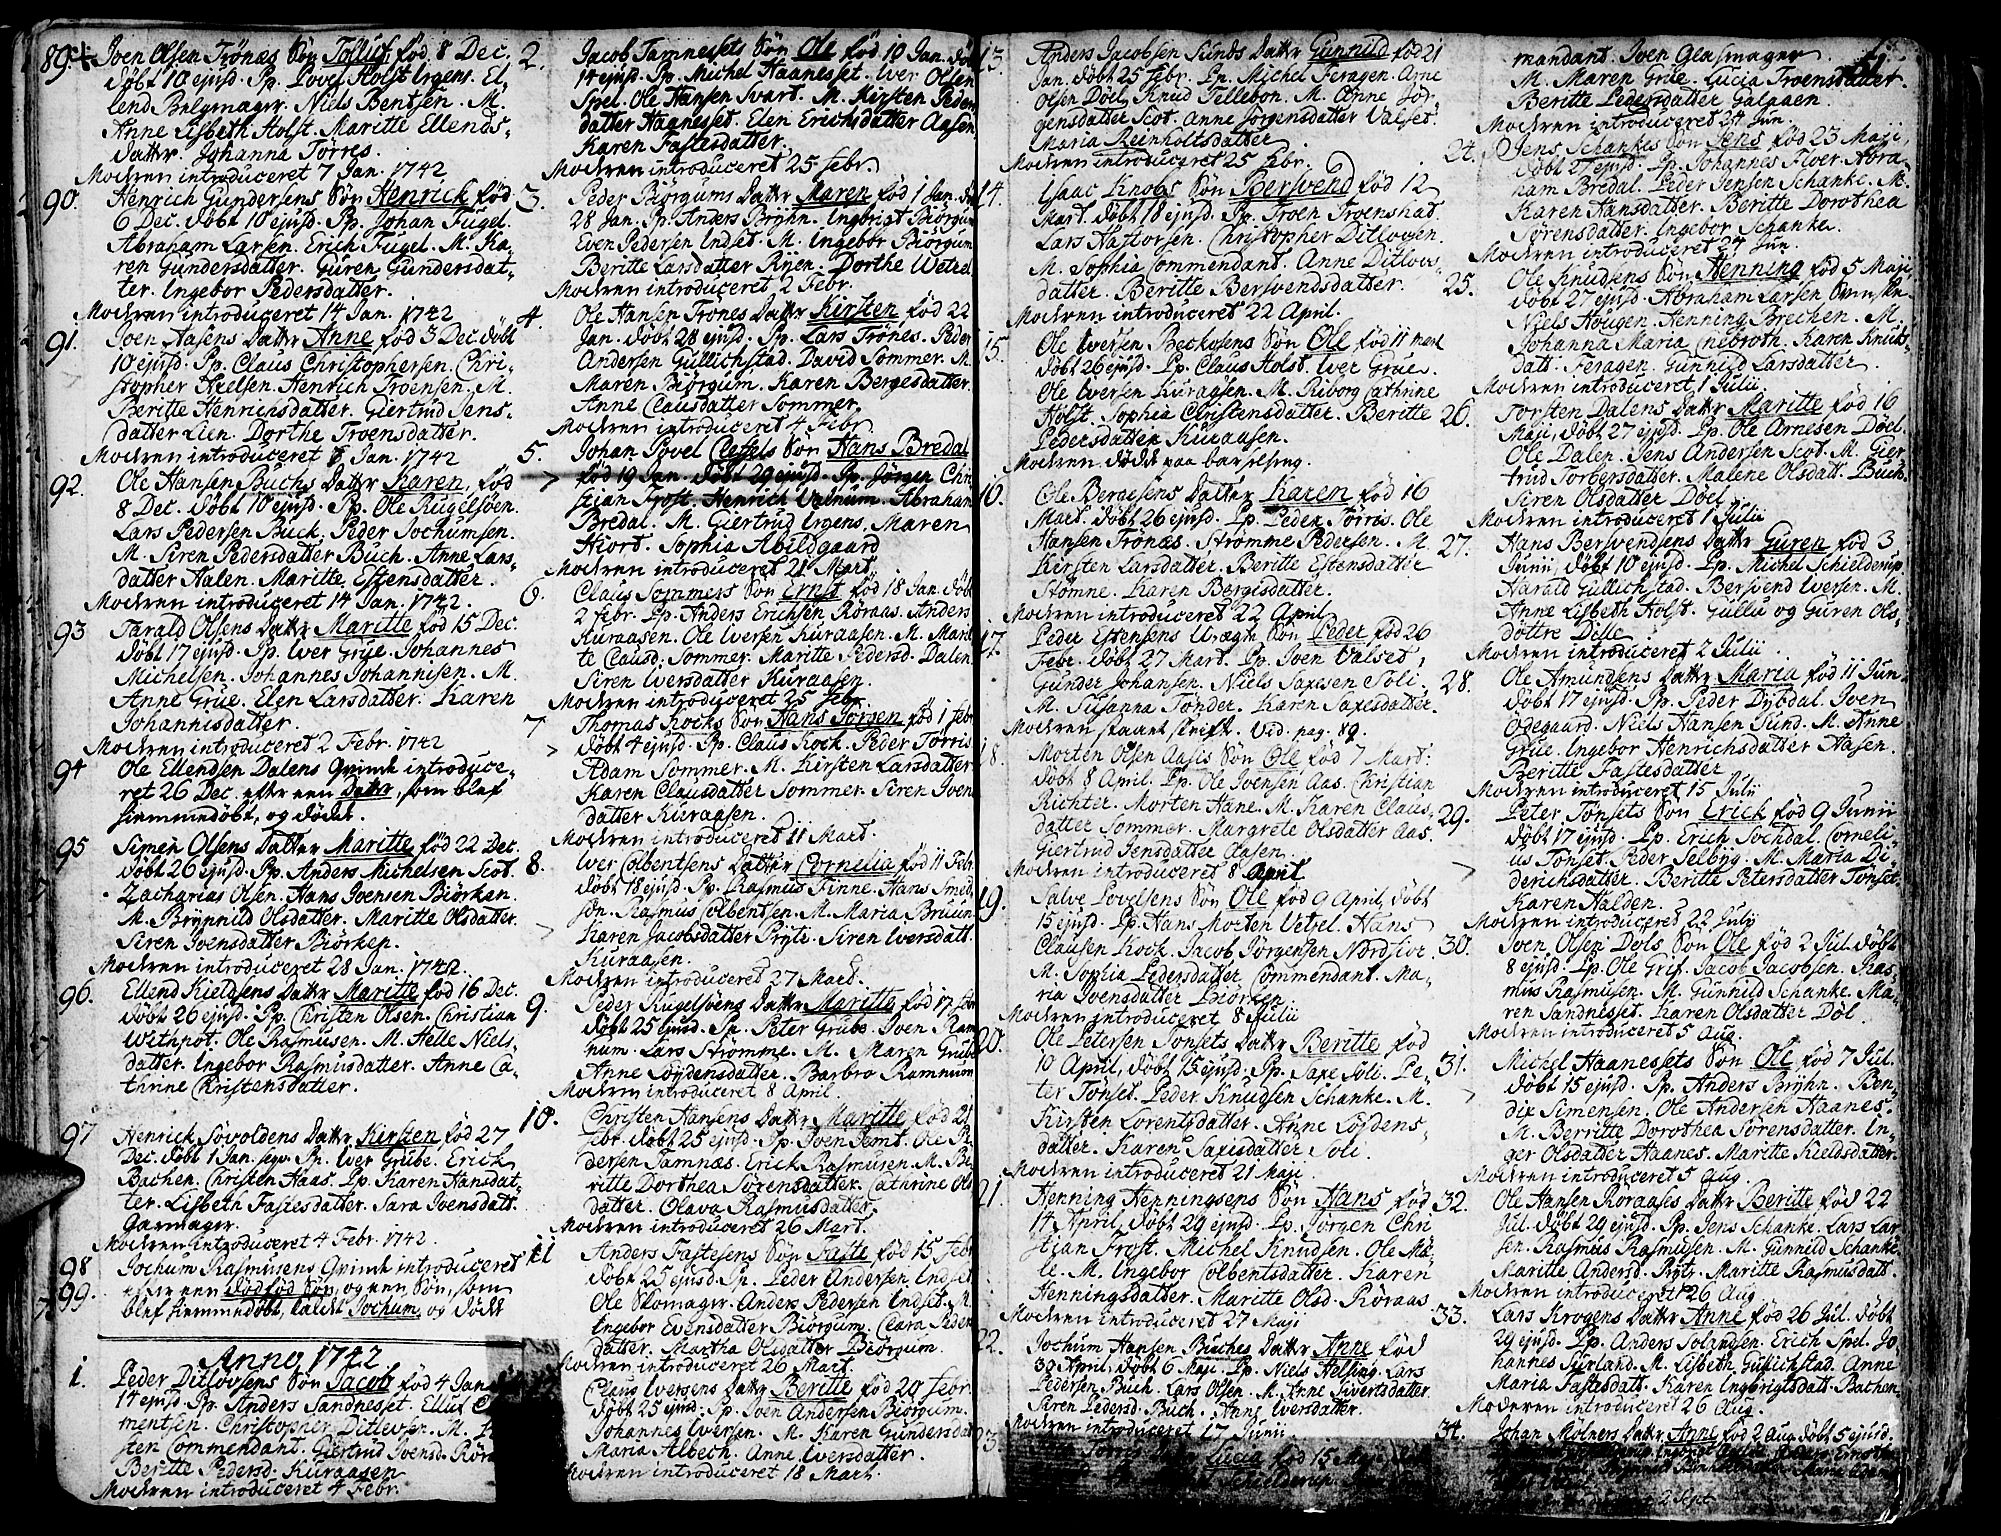 89. Joen Olsen Trönæs Sön Tolluf, föd 8 Dec.
döbt 10 ejusd. Pp. Lovej Holst Irgens. El-
lend Belgmager. Niels Bentsen. M.
Anne Lisbeth Holst. Maritte Ellends-
datter. Johanna Törres.
Modren introduceret 7 Jan. 1742
90. Henrich Gundersens Sön Henrick föd
6 Dec. döbt 10 ejusd. Pp. Johan Fugel.
Abraham Larsen. Erich Fugel. M. Ka-
ren Gundersdatter. Guren Gundersdat-
ter. Ingebor Pedersdatter.
Modren introduceret 14 Jan. 1742
91. Joen Aasens Datter Anne föd 3 Dec. döbt
10 ejusd. Pp. Claus Christophersen. Chri-
stopher Neelsen. Henrich Troensen. M.
Beritte Henrichsdatter. Giertrud Jens-
datter Lien. Dorthe Troensdatter.
Modren introduceret 6 Jan. 1742
92. Ole Hansen Buchs Datter Karen, föd
8 Dec. döbt 10 ejusd. Pp. Ole Rugelsjöen.
Lars Pedersen Buck. Peder Jochumsen.
M. Siren Pedersdatter Buch. Anne Lars-
datter Aalen. Maritte Estensdatter.
Modren introduceret 14 Jan. 1742.
93 Tarald Olsens Datter Maritte föd 15 Dec.
döbt 17 ejusd. Pp. Iver Grue. Johannes
Michelsen. Johannes Johannisen. M.
Anne Grue. Elen Larsdatter. Karen
Johannisdatter.
Modren introduceret 2 Febr. 1742
94 Ole Ellendsen Dalens Qvinde introduce-
ret 26 Dec. efter een Datter, som blef
hiemmedöbt, og döde.
95 Simen Olsens Datter Maritte föd 22 Dec.
döbt 26 ejusd. Pp. Anders Michelsen Scot.
Zacharias Olsen. Hans Joensen Biörkan.
M. Brynnild Olsdatter. Maritte Olsdatter.
Siren Joensdatter Biörken.
Modren introduceret 28 Jan. 1742.
96. Ellend Kieldsens Datter Maritte föd 16 Dec.
döbt 26 ejusd. Pp. Christen Olsen. Christian
Wethpot. Ole Rasmusen. M. Helle Niels-
datter. Ingebor Rasmusdatter. Anne Ca-
thrine Christensdatter.
97 Henrick Sövoldens Datter Kirsten föd 27
Dec. döbt 1 Jan. seqv. Pp. Iver Grübe. Erick
Bachen. Christen Haas. Pp. Karen Hansdat-
ter. Lisbeth Fastesdatter. Sara Joensdatt.
Garmager.
Modren introduceret 4 Febr. 1742.
98 Jochum Rasmusens Qvinde introduceret
99. efter een dödföd Sön, og een Sön, som
blef hiemmedöbt, kaldt Jochum, og döde
Anno 1742
1. Peder Ditlovsens Sön Jacob föd 4 Jan
14 ejusd. Pp. Anders Sandnesset. Elluf
mentsen. Christopher Ditlevsen. M.
sten Commendant. Giertrud Joensd. Röra
Beritte Pedersd. Kuraasen
Modren introduceret 4 Febr.
2. Jacob Tamnessets Sön Ole föd 10 Jan. döbt
14 ejusd. Pp. Michel Haanesset. Iver Olsen
Spel. Ole Hansen Svart. M. Kirsten Peders
datter Haanesset. Elen Erichsdatter Aasen
Karen Fastesdatter.
Modren introduceret 25 Febr.
3. Peder Biörgums Datter Maren föd 1 Jan. döbt
28 Jan. Pp. Anders Bryhn. Ingbrigt Biörgum
Even Pedersen Indset. M. Ingebor Biörgum
Beritte Larsdatter Ryen. Dorthe Wetzel
Modren introduceret 2 Febr.
4. Ole Hansen Trones Datter Kirsten föd 22
Jan. döbt 28 ejusd. Pp. Lars Trönes. Peder
Andersen Gullichstad. David Sommer. M.
Maren Biörgum. Karen Bergesdatter.
Anne Clausdatter Sommer.
Modren introduceret 4 Febr.
5. Johan Povel Cessels Sön Hans Bredal
föd 19 Jan. döbt 29 ejusd. Pp. Jörgen Chri
stian Frost. Henrich Valnum. Abraham
Bredal. M. Giertrud Irgens. Maren
Hiort. Sophia Abildgaard
Modren introduceret 21 Mart.
6. Claus Sommers Sön Ernst föd 18 Jan. döbt
2 Febr. Pp. Anders Erichsen Röraas. Anders
Kuraasen. Ole Iversen Kuraasen. M. Marit
te Clausd. Sommer. Maritte Pedersd. Dalen
Siren Iversdatter Kuraasen.
Modren introduceret 25 Febr.
7 Thomas Kocks Sön Hans Jörgen föd 1 Febr
döbt 4 ejusd. Pp. Claus Kock. Peder Törris
Adam Sommer. M. Kirsten Larsdatter
Karen Clausdatter Sommer. Siren Joens
datter Kuraasen.
Modren introduceret 11 Mart.
8. Iver Colbentsens Datter Cornelia föd 11 Febr
döbt 18 ejusd. Pp. Rasmus Finne. Hans Smed
sön. Rasmus Colbentsen. M. Maria Bruun
Karen Jacobsdatter Prytz. Siren Iversdatt.
Kuraasen.
Modren introduceret 27 Mart.
9. Peder Rugelsjöens Datter Maritte föd 17 Febr
döbt 25 ejusd. Pp. Peter Grübe. Joen Ram
num. Lars Strömme. M. Maren Grübe
Anne Löydensdatter. Barbro Ramnum
Modren introduceret 8 April.
10. Christen Hansens Datter Maritte föd 21
Febr. döbt 25 ejusd. Pp. Joen Jemt. Ole Pe
dersen Tamnæs. Erick Rasmusen. M. Be
ritte Dorthea Sörensdatter. Cathrine Ols
datter. Olava Rasmusdatter.
Modren introduceret 26 Mart.
11 Anders Fastesens Sön Faste föd 15 Febr
döbt 25 ejusd. Pp. Peder Andersen Indset
Ole Skomager. Anders Pedersen Indset. M.
Ingebor Evensdatter Biörgum. Clara Peders
datter. Martha Olsdatter Biörgum.
Modren introduceret 26 Mart.
Claus Iversens Datter Beritte föd 20 Febr
döbt 25 ejusd. Pp. Joen Andersen Biörgum.
Johannes Iversen. M. Karen Gundersdat
Maria Albech. Anne Iversdatter.
Modren introduceret 18 Mart.
13. Anders Jacobsen Sunds Datter Gunnild föd 21
Jan. döbt 25 Febr. Pp. Michel Feragen. Arne
Olsen Döel. Knud Tellebon. M. Anne Jör-
gensdatter Scot. Anne Jörgensdatter Valset.
Maria Reinholtsdatter
Modren introduceret 25 Febr.
14. Isaac Knobs Sön Bersvend föd 12
Mart. döbt 18 ejusd. Pp. Troen Troenshad.
Lars Hastorsen. Christopher Ditlovsen.
M. Sophia Commendant. Anne Ditlovs-
datter. Beritte Bersvendsdatter.
Modren introduceret 22 April.
15. Ole Iversen Beckosens Sön Ole föd 11 Mart
döbt 26 ejusd. Pp. Claus Holst. Iver Grue.
Ole Iversen Kuraasen. M. Riborg Cathrine
Holst. Sophia Christensdatter. Beritte
Pedersdatter Kuraasen.
Modren döde paa barselseng.
16. Ole Bergesens Datter Karen föd 16
Mart. döbt 26 ejusd. Pp. Peder Törris. Ole
Hansen Trönæs. Strömme Pedersen. M.
Kirsten Larsdatter. Beritte Estensdatter
Stömne. Karen Bergesdatter.
Modren introduceret 22 April
17. Peder Estensens Uægte Sön Peder föd 26
Febr. döbt 27 Mart. Pp. Joen Valset.
Gunder Johansen. Niels Saxesen Soli.
M. Susanna Tönder. Karen Saxesdatter.
Modren staaet skrift. Vid. pag. 89.
18. Morten Olsen Aases Sön Ole föd 7 Mart.
döbt 8 April. Pp. Ole Joensen Aas. Christian
Richter. Morten Hane. M. Karen Claus-
datter Sommer. Margrete Olsdatter Aas.
Giertrud Jensdatter Aasen.
Modren introduceret 8 April
19. Salve Povelsens Sön Ole föd 9 April, döbt
15 ejusd. Pp. Hans Morten Vetzel. Hans
Clausen Kock. Jacob Jörgensen Nordstve.
M. Sophia Pedersdatter Commendant. Ma-
ria Joensdatter Biörken.
Modren introduceret 8 Julii
20. Ole Petersen Tönsets Datter Beritte föd
10 April, döbt 15 ejusd. Pp. Saxe Soli. Pe-
ter Tönset. Peder Knudsen Schanke. M.
Kirsten Lorentzdatter. Anne Löydens-
datter. Karen Saxisdatter Soli.
Modren introduceret 21 Maji
21. Henning Henningsens Sön Hans föd
14 April, döbt 29 ejusd. Pp. Jörgen Chri
stian Frost. Michel Knudsen. Ole Mö-
le. M. Ingebor Colbentsdatter. Karen
Henningsdatter. Maritte Olsd. Röraas
Modren introduceret 27 Maji
22. Jochum Hansen Buches Datter Anne föd
30 April, döbt 6 Maji. Pp. Niels Helsing. Lars
Pedersen Buch. Lars Olsen. M. Anne Sivertsdatter
Siren Pedersd. Buch. Anne Iversdatter.
Modren introduceret 17 Junii
Lucia föd 15 Maji
mandant. Joen Glasmager
M. Maren Grue. Lucia Troensdatter.
Beritte Pedersdatter Galaaen.
Modren introduceret 24 Jun.
24. Jens Schankes Sön Jens föd 23 Maji,
döbt 27 ejusd. Pp. Johannes Floer. Abra-
ham Bredal. Peder Jensen Schanke. M.
Karen Hansdatter. Beritte Dorothea
Sörensdatter. Ingebor Schanke.
Modren introduceret 24 Jun.
25. Ole Knudsens Sön Henning föd 5 Maji
döbt 27 ejusd. Abraham Larsen Svenske.
Niels Hougen. Henning Brechen. M.
Johanna Maria Cnebroth. Karen Knuds-
datt. Feragen. Gunnild Larsdatter.
Modren introduceret 1 Julii
26. Torsten Dalens Datter Maritte föd 16
Maji, döbt 27 ejusd. Pp. Ole Arnesen Döel.
Ole Dalen. Jens Andersen Scot. M. Gier
trud Torbersdatter. Malene Olsdatt. Buch.
Siren Olsdatter Döel
Modren introduceret 1 Julii
27. Hans Bersvendsens Datter Guren föd 3
Junii, döbt 10 ejusd. Pp. Michel Schielderup
Harald Gullichstad. Bersvend Iversen. M.
Anne Lisbeth Holst. Gullu og Guren Ols-
döttre Dille
Modren introduceret 2 Julii
28. Ole Amundsens Datter Maria föd 11 Jun.
döbt 17 ejusd. Pp. Peder Dybdal. Joen
Odegaard. Niels Hansen Sund. M. Anne
Grue. Ingebor Henrichsdatter Aasen.
Beritte Fastesdatter
Modren introduceret 15 Julii
29. Peter Tönsets Sön Erick föd 9 Junii
döbt 17 ejusd. Pp. Erich Sochdal. Corneli-
us Tönset. Peder Selbyg. M. Maria Di-
derichsdatter. Beritte Petersdatter Tönset.
Karen Halden.
Modren introduceret 22 July
30. Joen Olsen Döls Sön Ole föd 2 Jul. döbt
8 ejusd. Pp. Ole Grif. Jacob Jacobsen. Ras-
mus Rasmusen. M. Gunnild Schanke. Ma-
ren Sandnesset. Karen Olsdatter Döl
Modren introduceret 5 Aug.
31. Michel Haanessets Sön Ole föd 7 Jul.
döbt 15 ejusd. Pp. Anders Bryhn. Ben-
dix Simensen. Ole Andersen Haanes.
M. Berritte Dorothea Sörensdatter. In-
ger Olsdatter Haanes. Maritte Kieldsdatter
Modren introduceret 5 Aug.
32. Ole Hansen Roraases Datter Beritte föd 22
Jul. döbt 29 ejusd. Pp. Jens Schanke. Lars Lar
sen. Rasmus Rasmusen. M. Gunnild Schanke.
Maritte Andersd. Prytz. Maritte Rasmusdatt.
Modren introduceret 26 Aug
33. Lars Krogens Datter Anne föd 26 Jul. döbt
29 ejusd. Pp. Anders Solandsen. Erich Spel. Jo
hannes Surland. M. Lisbeth Gulichstad. Anne
Maria Fastesdatt. Karen Ingbrigtsdatt. Bachen
Modren introduceret 26 Aug.
34. Johan Mölners Datter Anne föd 2 Aug. döbt 5 ejusd.
2 Sept